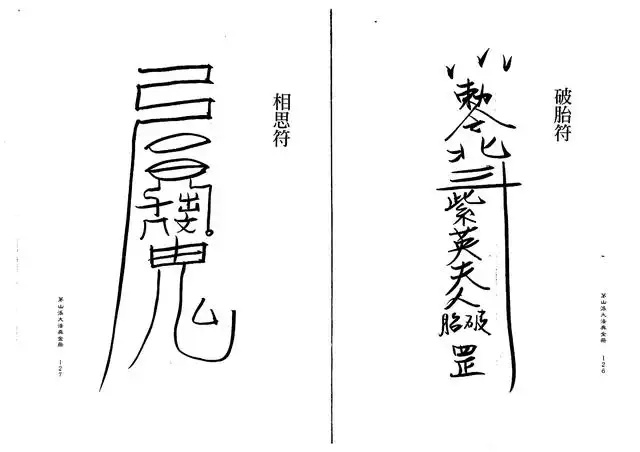 破胎符
敕令
北斗
紫英夫人
破胎
罡
茅山派大法典全冊 126
相思符
鬼
茅山派大法典全冊 127